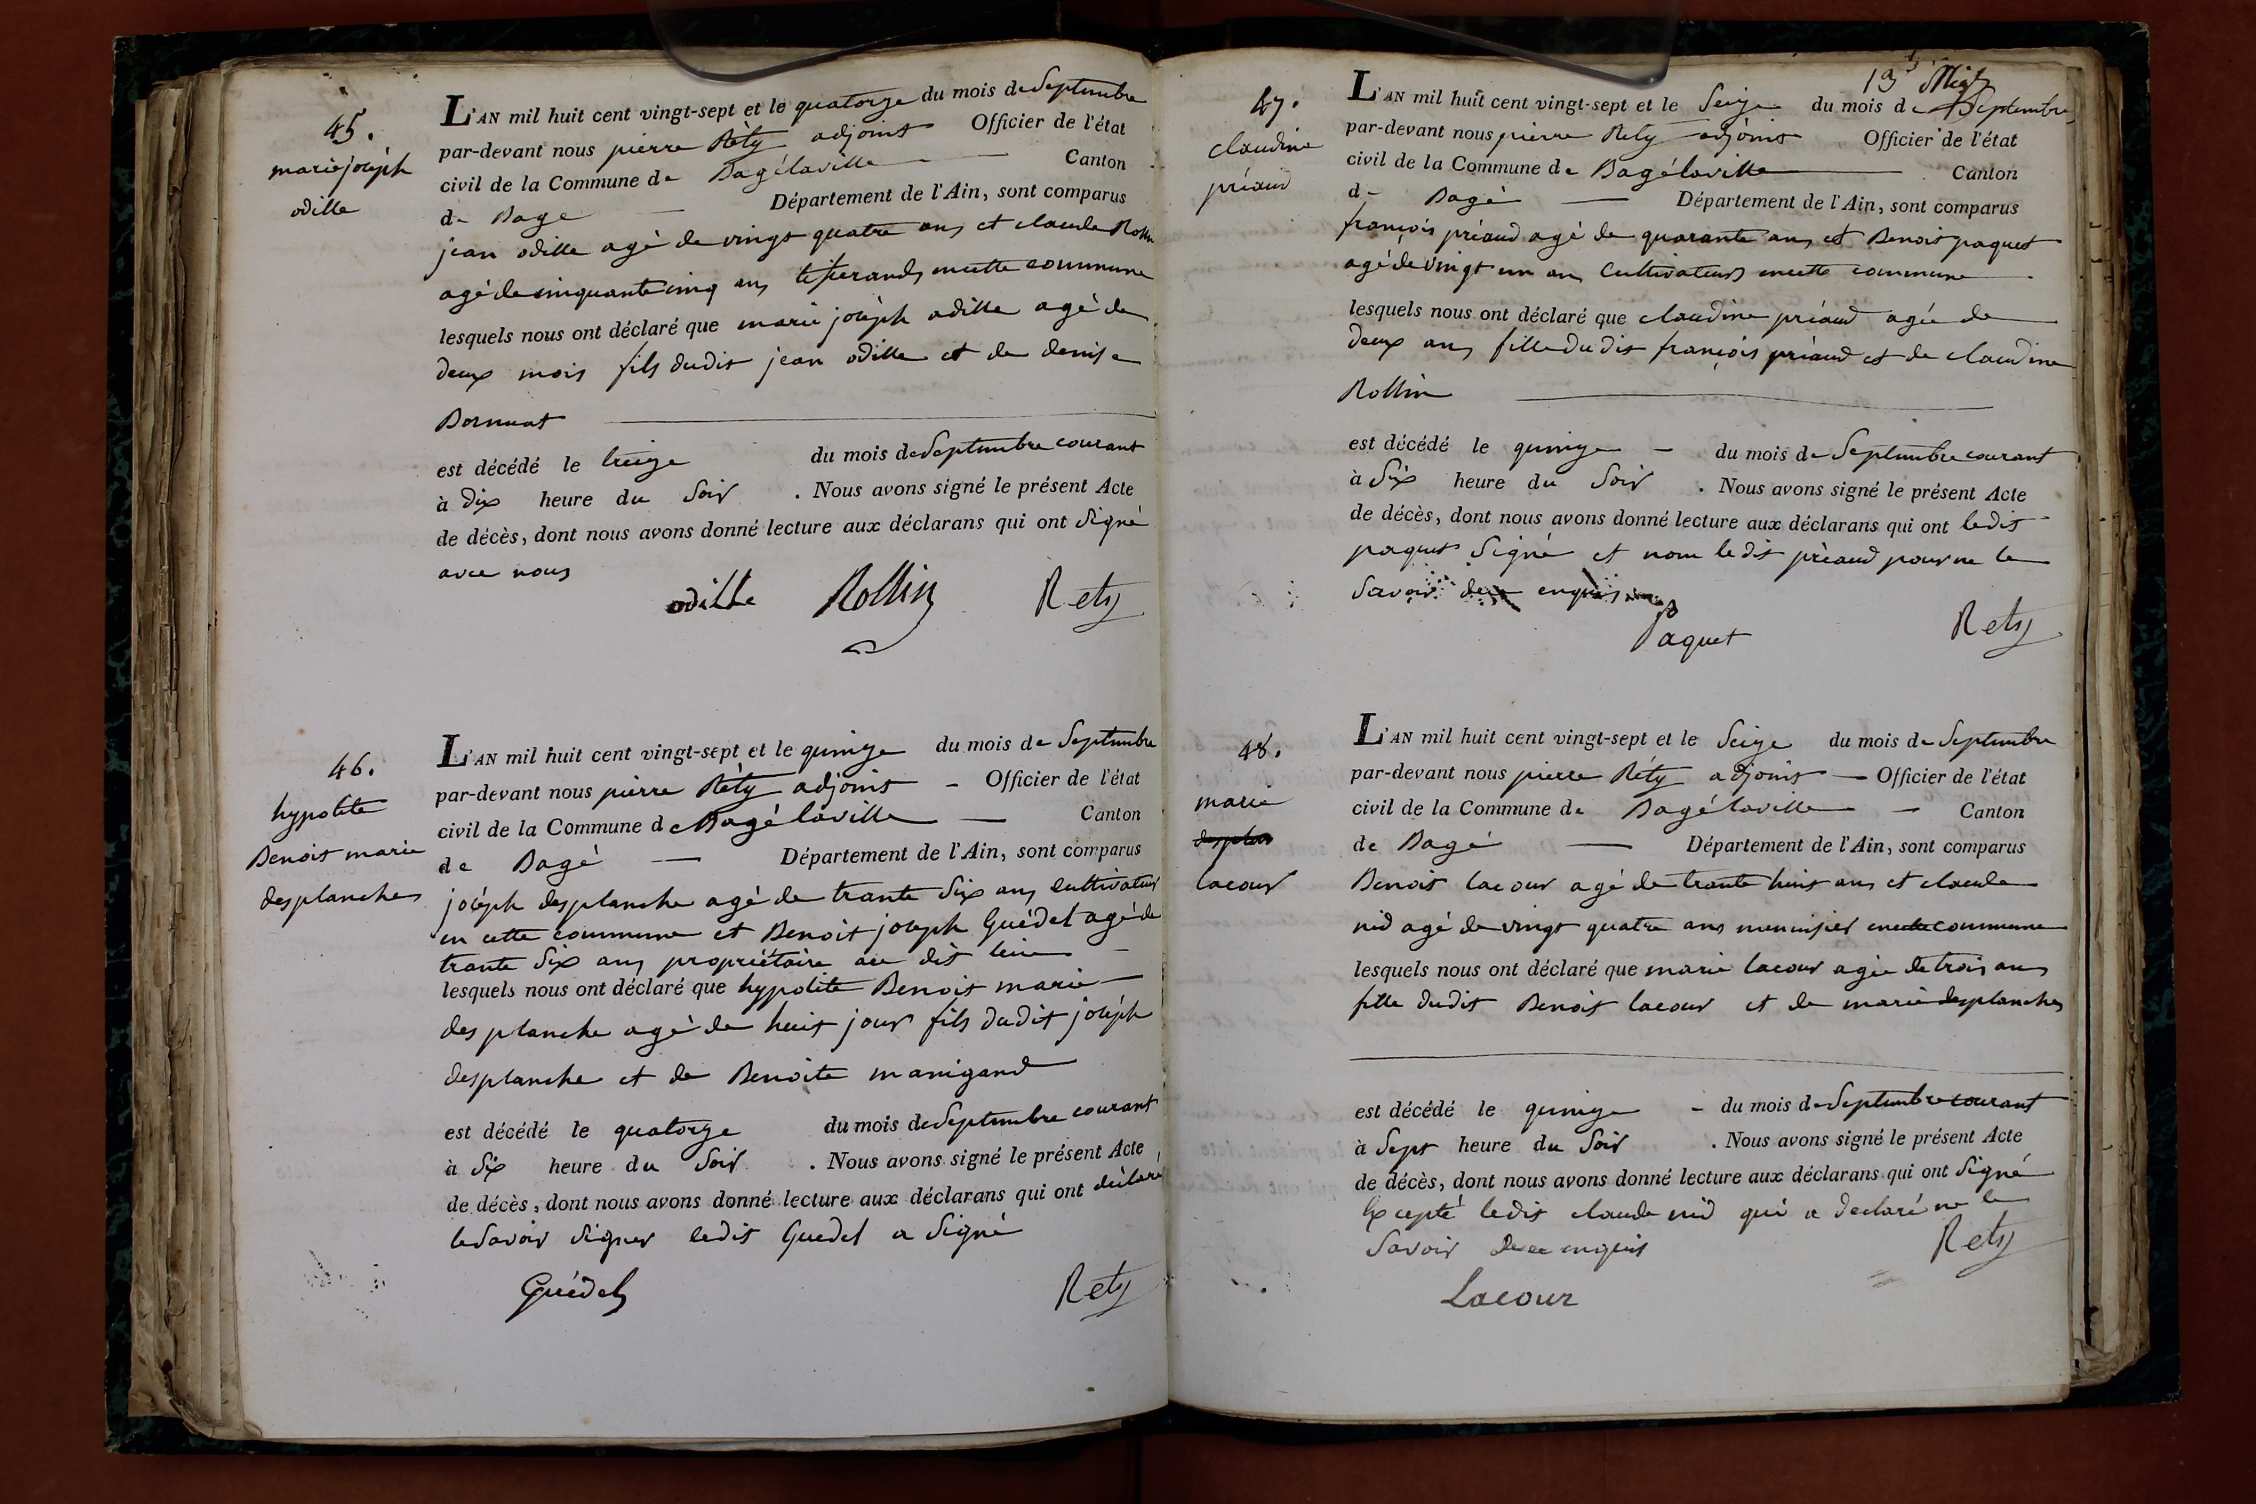 45.
marie joséph
odille
L'AN mil huit cent vingt-sept et le quatorze du mois de Septembre
par-devant nous pierre Réty adjoint Officier de l'état
civil de la Commune de Bagélaville Canton
de Bage Département de l'Ain, sont comparus
jean odille agé de vingt quatre ans et claude Rollin
agé de cinquante cinq ans tisserands en cette commune
lesquels nous ont déclaré que marie joséph odille agé de
deux mois fils dudit jean odille et de denise
Bornuat
est décédé le treize du mois de Septembre courant
à dix heure du Soir . Nous avons signé le présent Acte
de décès, dont nous avons donné lecture aux déclarans qui ont Signé
avec nous
odille Rollin Rety
46.
hypolite
Benoit marie
desplanches
L'AN mil huit cent vingt-sept et le quinze du mois de Septembre
par-devant nous pierre Réty adjoint Officier de l'état
civil de la Commune de Bagélaville Canton
de Bagé Département de l'Ain, sont comparus
joséph desplanche agé de trante Six ans cultivateur
en cette commune et Benoit joseph Guédel agé de
trante Six ans propriétaire au dit lieu
lesquels nous ont déclaré que hypolite Benoit marie
des planche agé de huit jour fils dudit joséph
desplanche et de Benoite manigand
est décédé le quatorze du mois de Septembre courant
à Six heure du Soir . Nous avons signé le présent Acte
de décès, dont nous avons donné lecture aux déclarans qui ont déclaré
le Savoir Signer ledit Guedel a Signé
Guédel Rety
13
47.
claudine
préaud
L'AN mil huit cent vingt-sept et le Seize du mois de Septembre
par-devant nous pierre Rety adjoint Officier de l'état
civil de la Commune de Bagélaville Canton
de Bagé Département de l'Ain, sont comparus
françois préaud agé de quarante ans et Benoit paquet
agé de vingt un ans Cultivateurs en cette commune
lesquels nous ont déclaré que claudine préaud agée de
deux ans fille du dit françois préaud et de claudine
Rollin
est décédé le quinze du mois de Septembre courant
à Six heure du Soir . Nous avons signé le présent Acte
de décès, dont nous avons donné lecture aux déclarans qui ont ledit
paquet Signé et non ledit préaud pour ne le
Savoir de ce enquis
Paquet Rety
48.
marie
lacour
L'AN mil huit cent vingt-sept et le Seize du mois de Septembre
par-devant nous pierre Réty adjoint Officier de l'état
civil de la Commune de Bagélaville Canton
de Bagé Département de l'Ain, sont comparus
Benoit lacour agé de trante huit ans et claude
nid agé de vingt quatre ans menuisier en cette commune
lesquels nous ont déclaré que marie lacour agée de trois ans
fille dudit Benoit lacour et de marie desplanches
est décédé le quinze du mois de Septembre courant
à Sept heure du Soir . Nous avons signé le présent Acte
de décès, dont nous avons donné lecture aux déclarans qui ont Signé
Excepté ledit claude nid qui a declaré ne le
Savoir de ce enquis Rety
Lacour